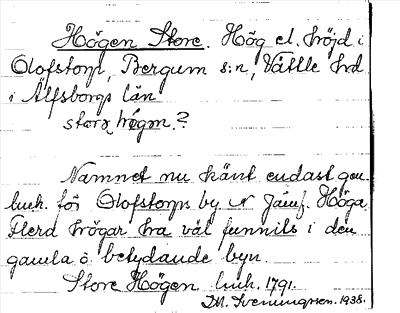 Högen Store. Hög el. höjd i
Olofstorp, Bergum s:n, Vättle hd
i Älfsborgs län
stora högen?
Namnet nu känt endast gen.
luck. för Olofstorps by N Jämf. Höga
Flerd högar ha väl funnits i den
gamla o betydande byn.
Store Högen luck. 1791.
J.M. Svenungsen. 1938.